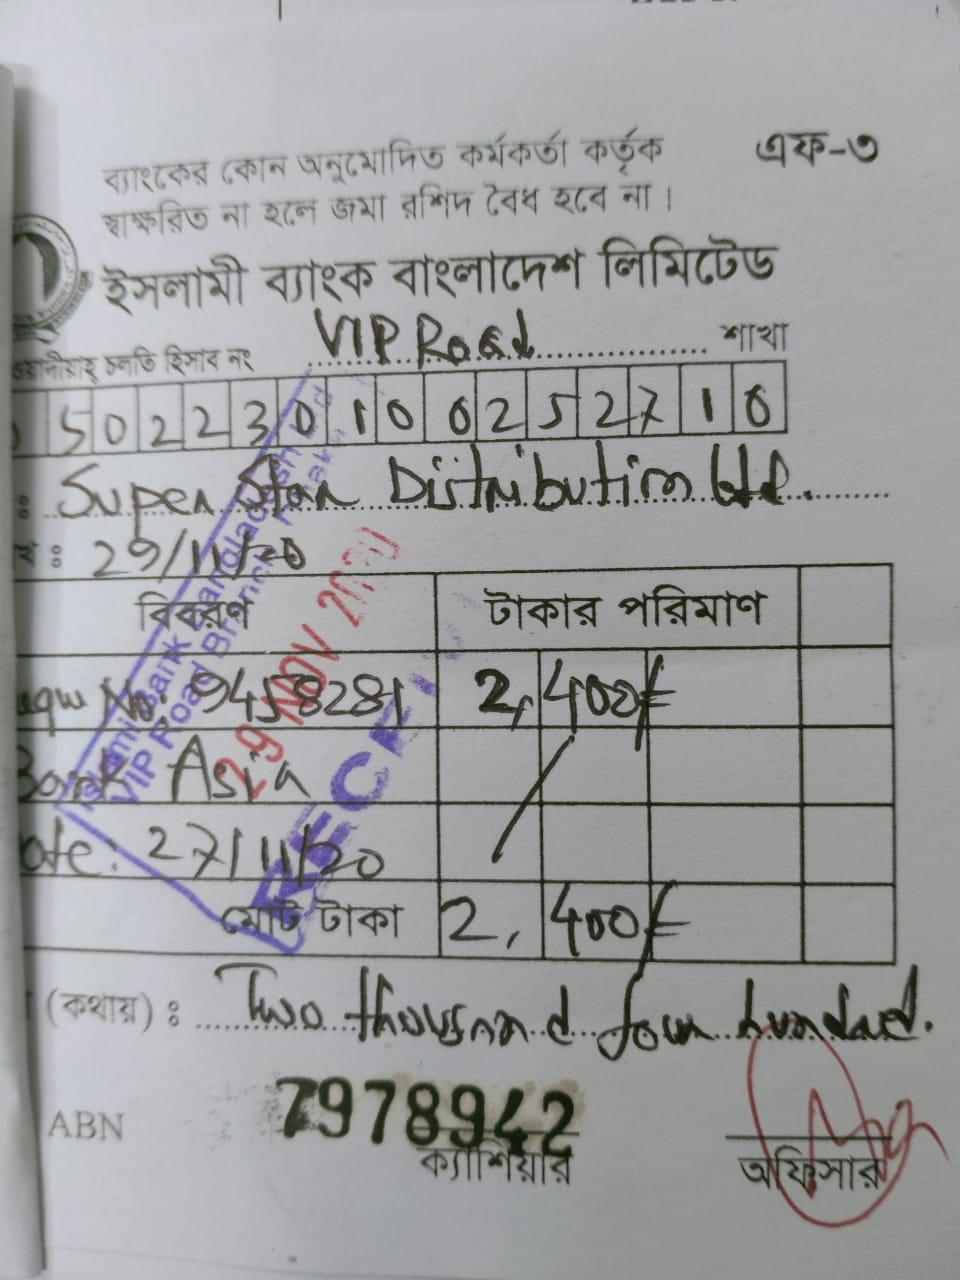 ব্যাংকের কোন অনুমোদিত কর্মকর্তা কর্তৃক
এফ-৩
স্বাক্ষরিত না হলে জমা রশিদ বৈধ হবে না।
ইসলামী ব্যাংক বাংলাদেশ লিমিটেড
VIP Road শাখা
চলতি হিসাব নং
5 0 2 2 3 0 1 0 0 2 5 2 7 1 0
: Super Star Distribution Ltd.
: 29/11/20
বিবরণ টাকার পরিমাণ
No. 9458281 2,400/=
Bank Asia
27/11/20
মোট টাকা 2,400/=
(কথায়) : Two thousand four hundred.
Islami Bank Bangladesh
VIP Road Branch
29 NOV 2020
ABN
7978942
ক্যাশিয়ার
অফিসার